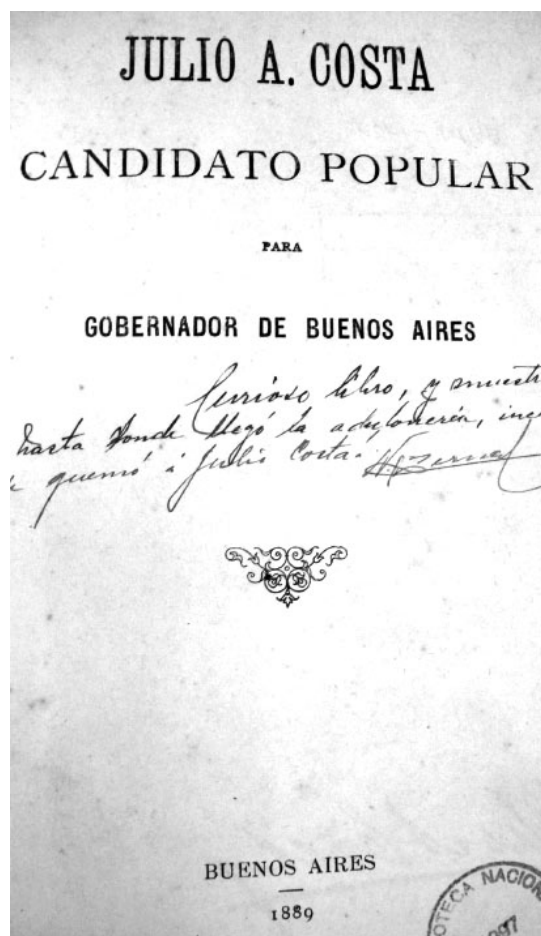 JULIO A. COSTA
CANDIDATO POPULAR
PARA
GOBERNADOR DE BUENOS AIRES
Curioso libro, y muestr
hasta donde llegó la adulonería, ince
quemó á Julio Costa.
BUENOS AIRES
1889
OTECA NACION